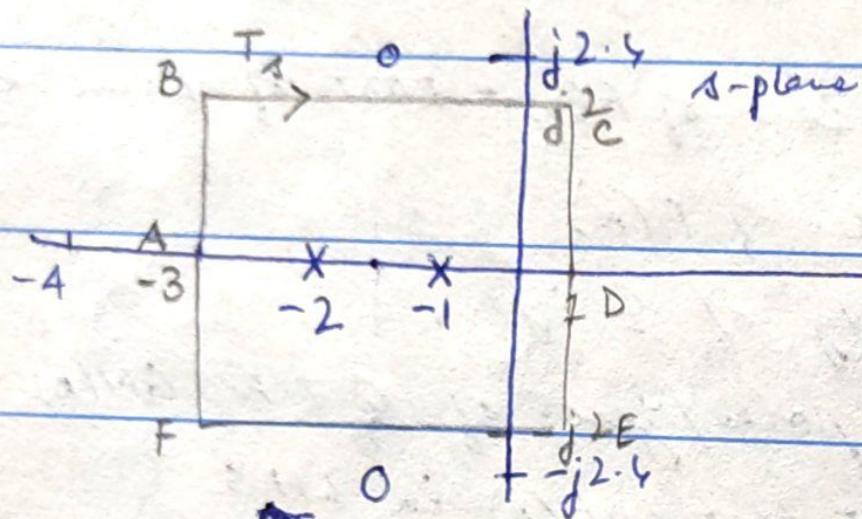 T_s
j2.4
s-plane
B
j2
C
A
-4
-3
-2
-1
1
D
F
-j2
E
-j2.4